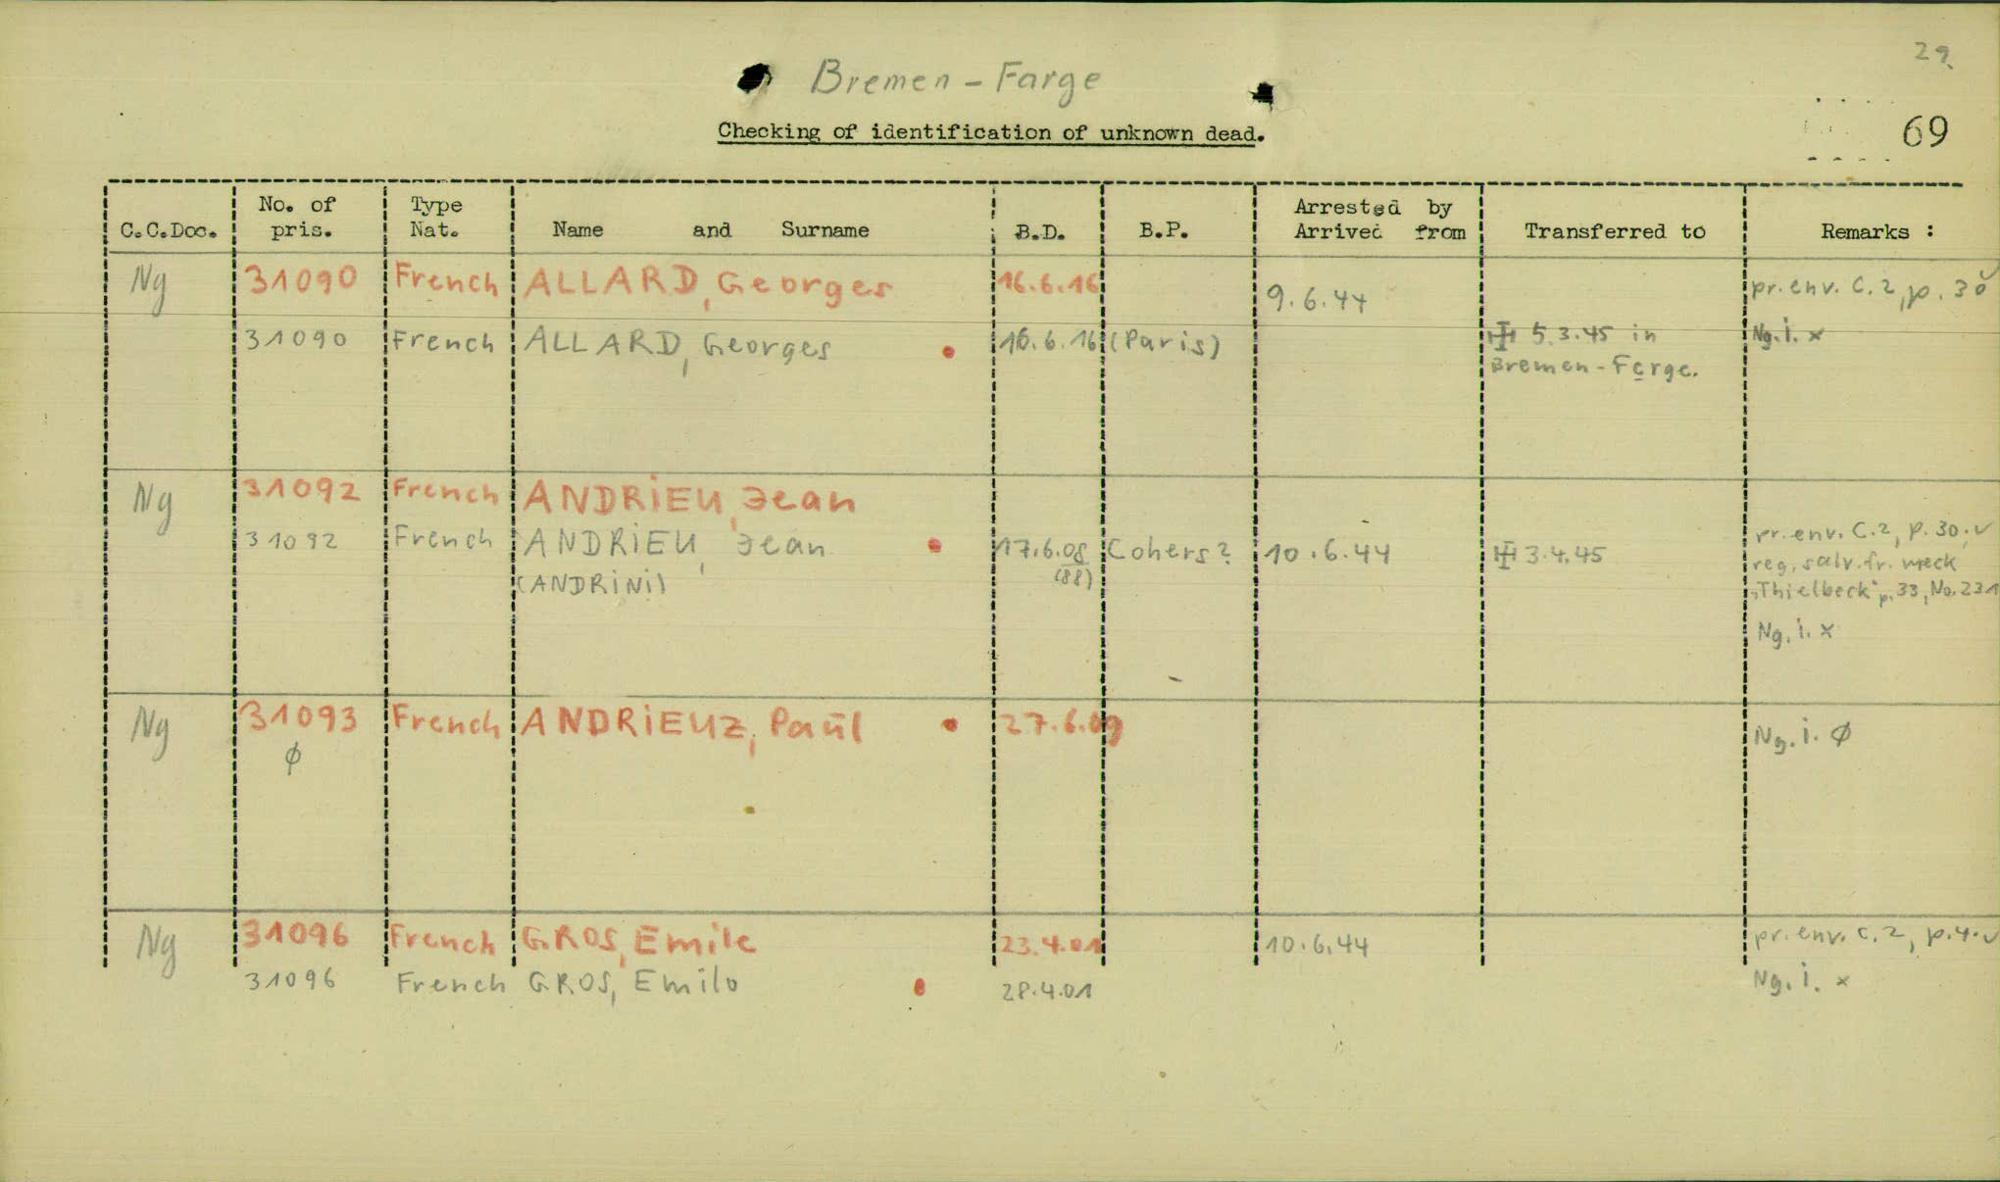 29
Bremen - Farge
69
Checking of identification of unknown dead.
C.C.Doc. No. of pris. Type Nat. Name and Surname B.D. B.P. Arrested by Arrived from Transferred to Remarks :
Ng 31090 French ALLARD, Georges 16.6.16 9.6.44 pr. env. C.2, p. 30
31090 French ALLARD, Georges 16.6.16 (Paris) 5.3.45 in Ng. i. x
Bremen - Farge.
Ng 31092 French ANDRIEU, Jean
31092 French ANDRIEU, Jean 17.6.08 Cohers? 10.6.44 3.4.45 pr. env. C.2, p. 30. v
(ANDRINI) (88) reg. salv. fr. wreck
"Thielbeck" p. 33, No. 231
Ng. i. x
Ng 31093 French ANDRIEUZ, Paul 27.6.09 Ng. i. Ø
Ø
Ng 31096 French GROS, Emile 23.4.01 10.6.44 pr. env. C.2, p. 4. v
31096 French GROS, Emilo 28.4.01 Ng. i. x